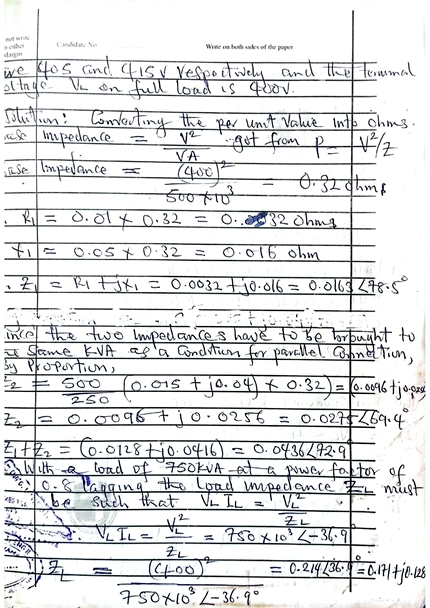 not write
either
margin
Candidate No
Write on both sides of the paper
405 and 415V respectively and the terminal
oltage VL on full load is 400V.
Solution: Converting the per unit value into ohms.
ase impedance = V²/VA got from P = V²/Z
ase Impedance = (400)²/500×10³ = 0.32 ohms
R1 = 0.01 × 0.32 = 0.0032 ohms
X1 = 0.05 × 0.32 = 0.016 ohm
Z1 = R1 + jX1 = 0.0032 + j0.016 = 0.0163∠78.5°
ince the two impedances have to be brought to
same KVA as a Condition for parallel Connection,
by proportion,
Z2 = 500/250 (0.015 + j0.04) × 0.32) = (0.0096 + j0.0256
Z2 = 0.0096 + j0.0256 = 0.0275∠69.4°
Z1+Z2 = (0.0128 + j0.0416) = 0.0436∠72.9°
With a load of 750KVA at a power factor of
0.8 lagging the load impedance ZL must
be such that VL IL = VL²/ZL
VL IL = VL²/ZL = 750 × 10³∠-36.9°
ZL = (400)²/750×10³∠-36.9° = 0.214∠36.9° = 0.171+j0.128